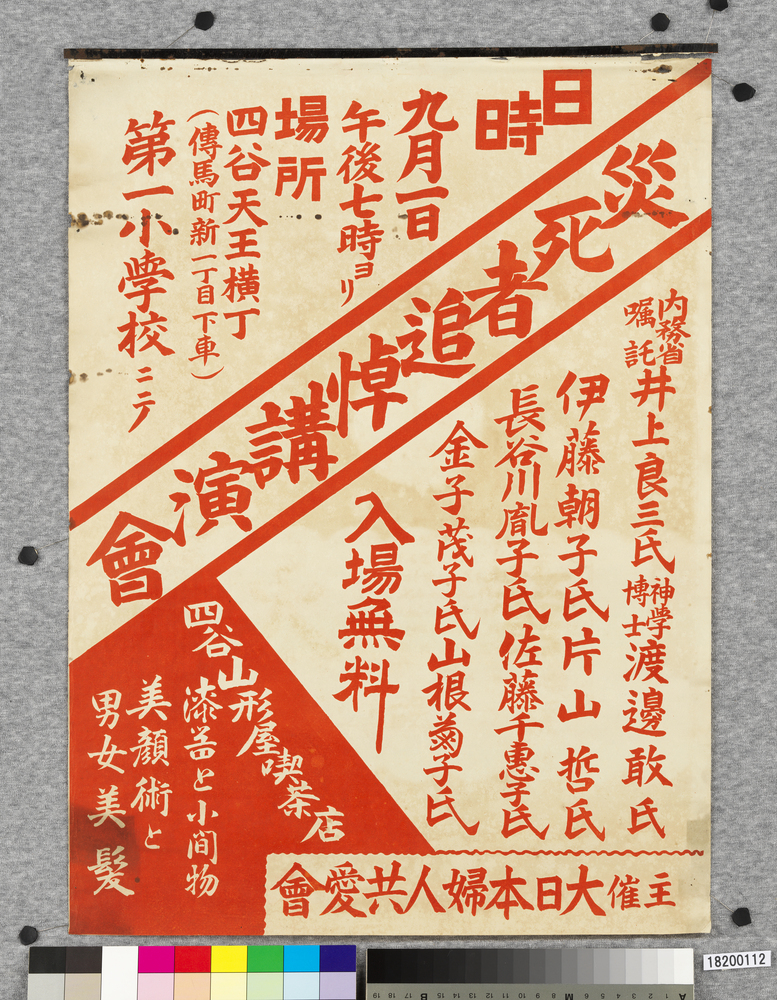 日時
九月一日
午後七時ヨリ
場所
四谷天王横丁
(傳馬町新一丁目下車)
第一小學校ニテ
災死者追悼講演會
内務省
嘱託
井上良三氏
神學
博士
渡邊敢氏
伊藤朝子氏片山哲氏
長谷川胤子氏佐藤千惠子氏
金子茂子氏山根菊子氏
入場無料
四谷山形屋喫茶店
漆器と小間物
美顏術と
男女美髮
主催大日本婦人共愛會
18200112